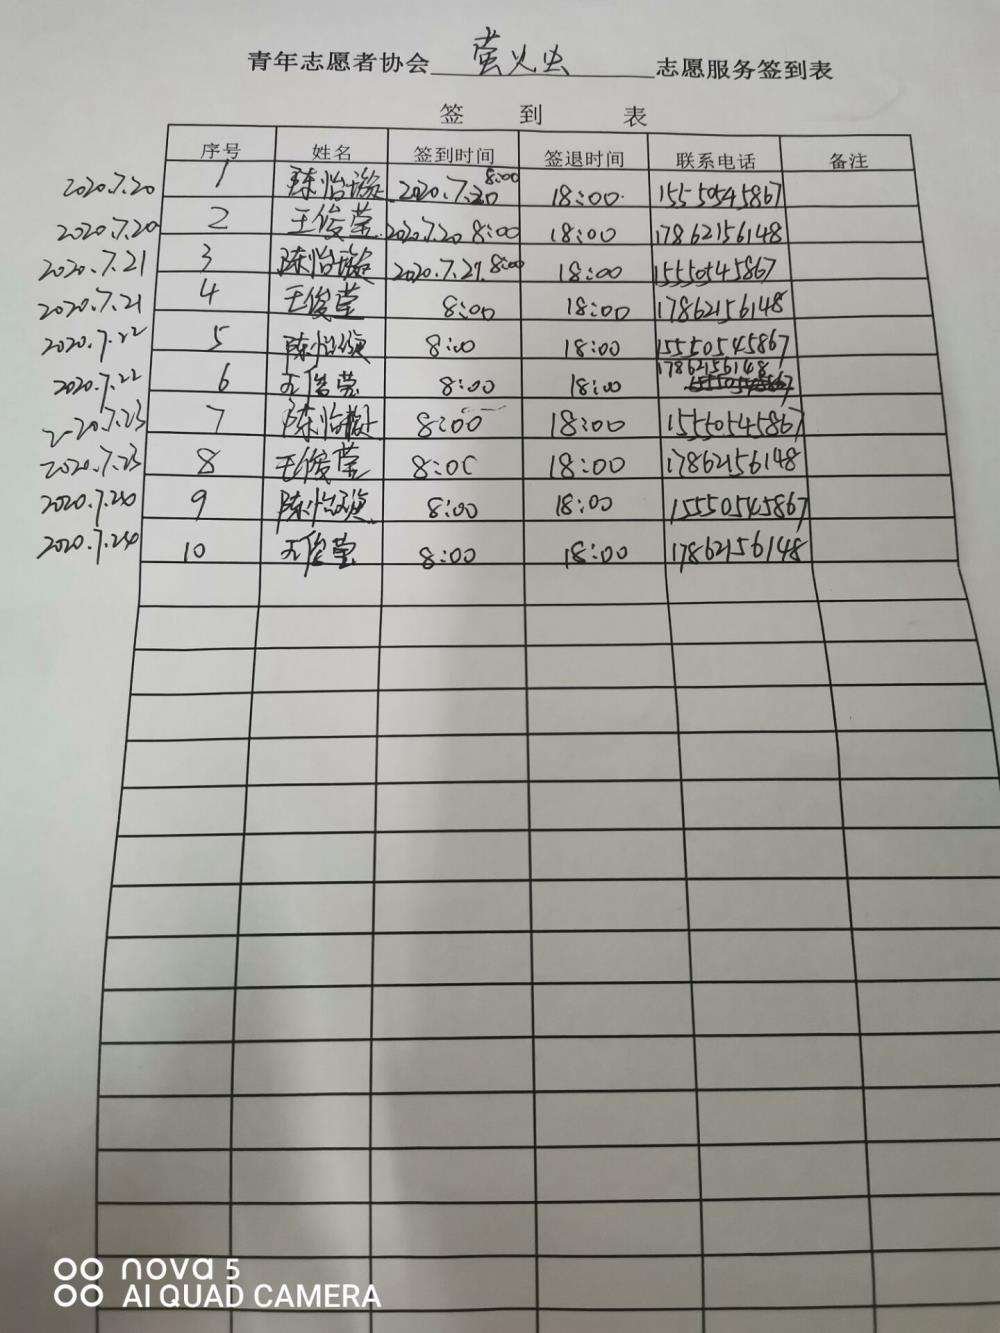 青年志愿者协会 萤火虫 志愿服务签到表
签 到 表
序号 姓名 签到时间 签退时间 联系电话 备注
2020.7.20 1 陈怡璇 2020.7.20 8:00 18:00 15550545867
2020.7.20 2 王俊莹 2020.7.20 8:00 18:00 17862156148
2020.7.21 3 陈怡璇 2020.7.21 8:00 18:00 15550545867
2020.7.21 4 王俊莹 8:00 18:00 17862156148
2020.7.22 5 陈怡璇 8:00 18:00 15550545867
2020.7.22 6 王俊莹 8:00 18:00 17862156148
2020.7.23 7 陈怡璇 8:00 18:00 15550545867
2020.7.23 8 王俊莹 8:00 18:00 17862156148
2020.7.24 9 陈怡璇 8:00 18:00 15550545867
2020.7.24 10 王俊莹 8:00 18:00 17862156148
nova 5
AI QUAD CAMERA